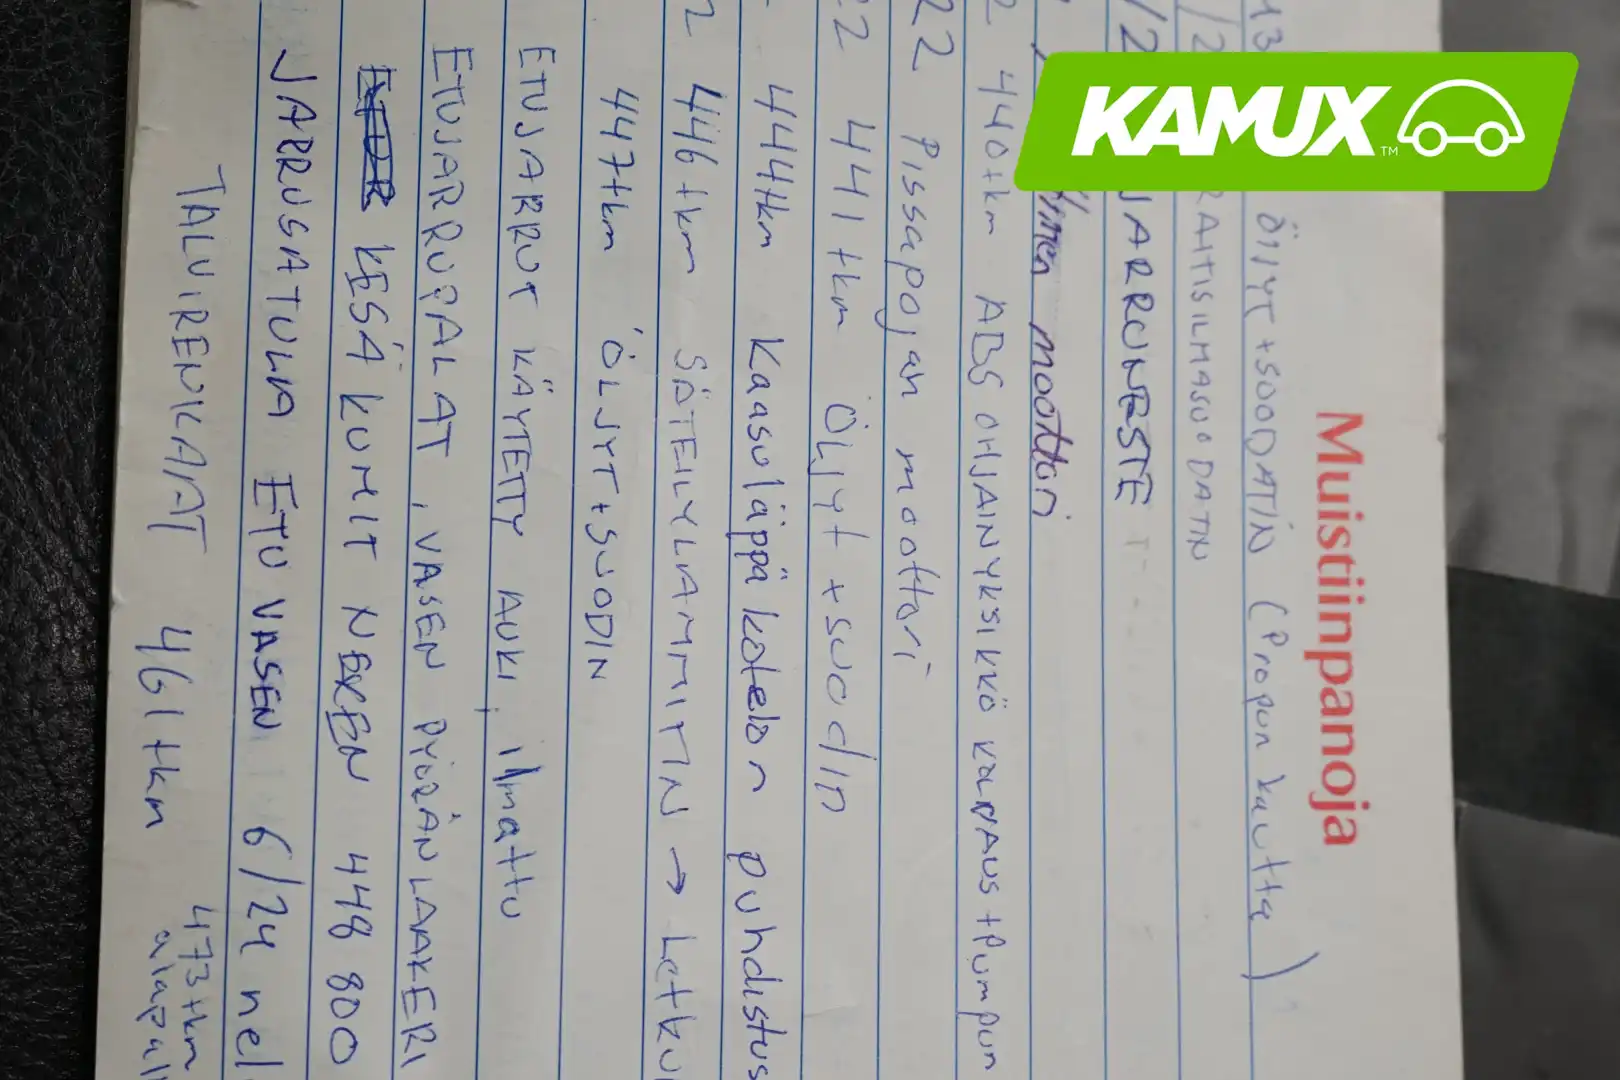 KAMUX
TM
Muistiinpanoja
ÖljyT + SUODATIN (Propun kautta)
RAITISILMASUODATIN
JARRUNESTE
moottori
440tkm ABS OHJAINYKSIKKÖ KORJAUS + Pumpun
22 Pissapojan moottori
441tkm Öljyt + suodin
444tkm Kaasuläppäkotelon puhdistus
446tkm SÄTEILYLÄMMITIN → Letku
447tkm ÖLJYT + SUODIN
ETUJARRUT KÄYTETTY AUKI, ilmattu
ETUJARRUPALAT, VASEN PYÖRÄNLAAKERI
KESÄKUMIT NEXEN 448 800
JARRUSATULA ETU VASEN 6/24 nel
TALVIRENKAAT 461tkm 473tkm